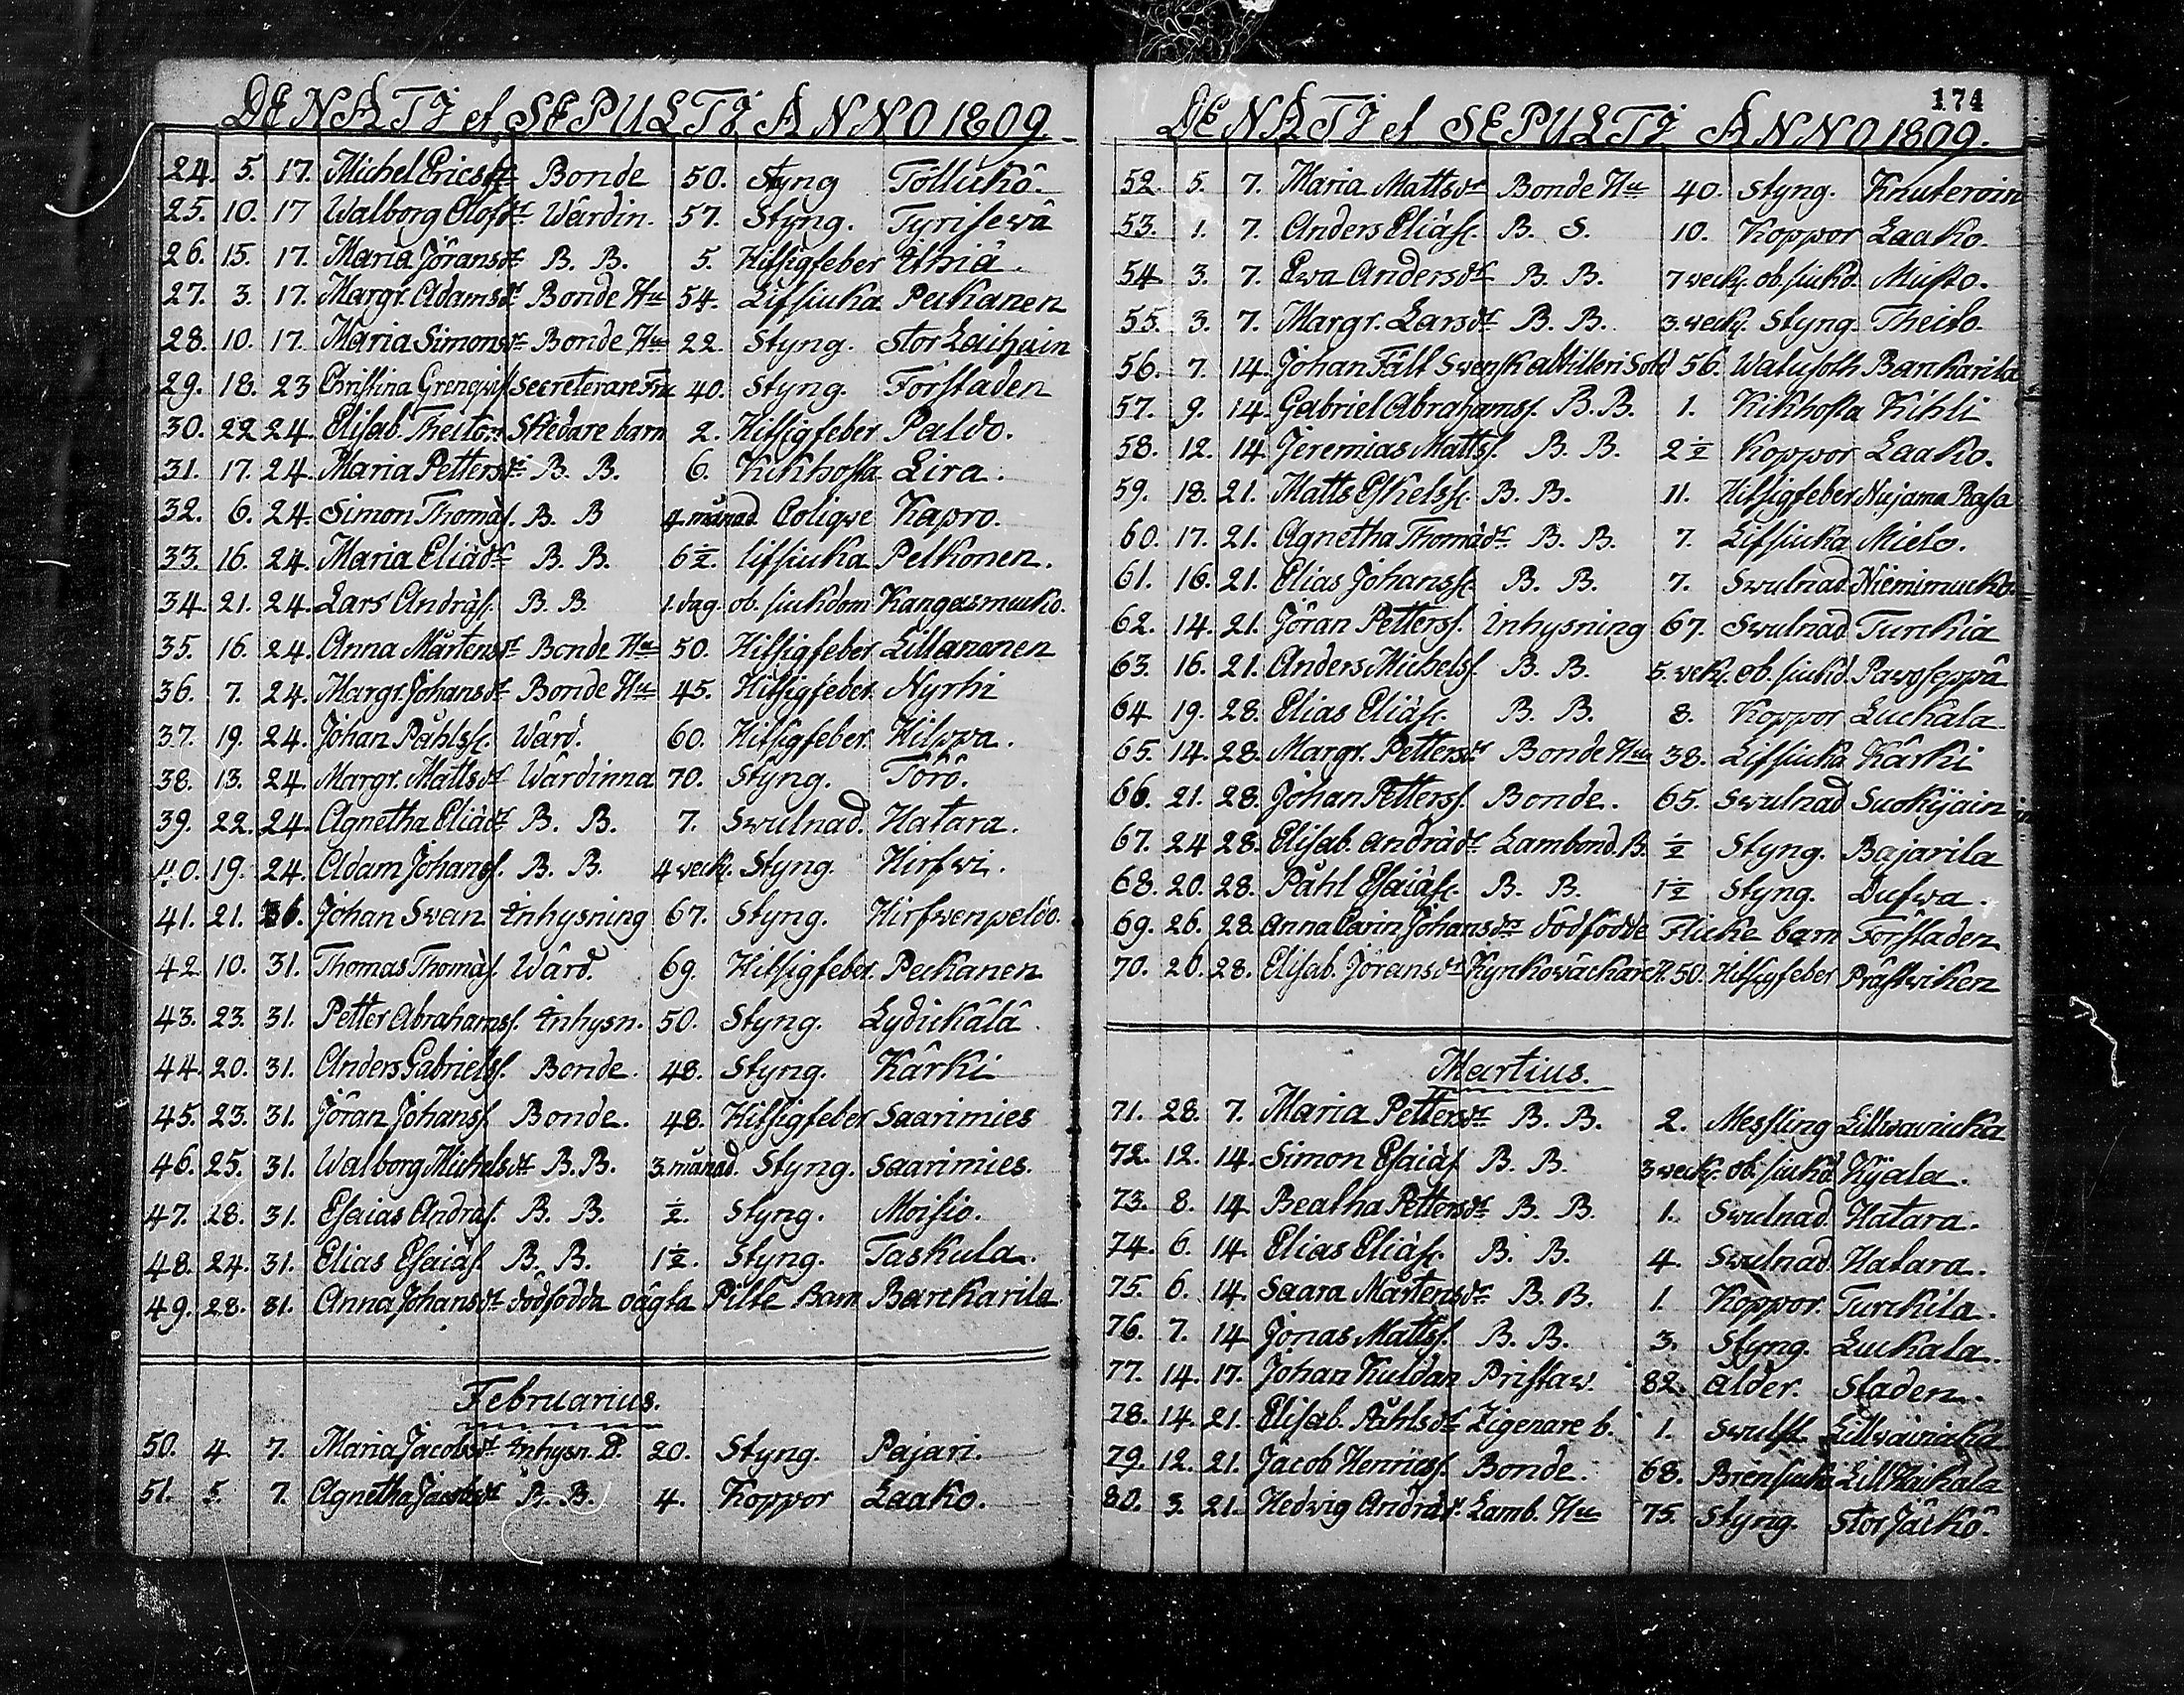 DENATI et SEPULTI ANNO 1809
24. 5. 17. Michel Ericss. Bonde 50. Styng Tollickô.
25. 10. 17 Walborg Olofsdr Wârdin. 57. Styng. Tyrisewâ
26. 15. 17. Maria Jöransdr B. B. 5. Hitsigfeber
27. 3. 17. Margr. Adamsdr Bonde Hu 54. Lifsiuka Peckanen
28. 10. 17. Maria Simonsdr Bonde Hu 22. Styng. Stor Laihain
29. 18. 23 Christina Grenqvist Secreterare Fru 40. Styng. Förstaden
30. 22 24. Elisab. Theiton Skedare barn 2. Hitsigfeber Paldo.
31. 17. 24. Maria Pettersdr B. B. 6. Kikhosta Lira.
32. 6. 24. Simon Thomäs. B. B 4 månad. Coliqve Kapro.
33. 16. 24. Maria Eliädr B. B. 6½. lifsiuka Pelkonen.
34. 21. 24. Lars Andräs. B. B. 1. dag. ob. siukdom Kangasmucko.
35. 16. 24. Anna Mårtensdr Bonde Hu 50. Hitsigfeber Lillananen
36. 7. 24. Margr. Johansdr Bonde Hu 45. Hitsigfeber. Nyrhi
37. 19. 24. Johan Påhlss. Wärd. 60. Hitsigfeber. Hilppa.
38. 13. 24. Margr. Mattsdr Wärdinna 70. Styng. Törö.
39. 22. 24. Agnetha Eliädr B. B. 7. Swulnad. Hatara.
40. 19. 24. Adam Johanss. B. B. 4 weck. Styng. Hirfwi.
41. 21. 26. Johan Swan Inhysning 67. Styng. Hirfwenpeldo.
42 10. 31. Thomas Thomäs. Wärd. 69. Hitsigfeber. Peckanen
43. 23. 31. Petter Abrahamss. Inhysn. 50. Styng. Lydickälä.
44. 20. 31. Anders Gabrielss. Bonde. 48. Styng. Kärki
45. 23. 31. Jöran Johanss. Bonde. 48. Hitsigfeber Saarimies
46. 25. 31. Walborg Michelsdr B. B. 3. månad. Styng. Saarimies.
47. 28. 31. Esaias Andräs. B. B. ½. Styng. Moisio.
48. 24. 31. Elias Esaiäs. B. B. 1½. Styng. Taskula.
49. 28. 31. Anna Johansdr dödfödda oägta Pilte Barn Barckarila
Februarius.
50. 4 7. Maria Jacobsdr Inhysn. D. 20. Styng. Pajari.
51. 5. 7. Agnetha Jacobsdr B. B. 4. Koppor Laako.
174
DENATI et SEPULTI ANNO 1809.
52. 5. 7. Maria Mattsdr Bonde Hu 40. Styng. Knuteroin
53. 1. 7. Anders Eliäss. B. S. 10. Koppor Laako.
54 3. 7. Ewa Andersdr B. B. 7 weck. ob. siukd. Musto.
55. 3. 7. Margr. Larsdr B. B. 3. weck. Styng. Theito.
56. 7. 14. Johan Fält Swensk Altilleri Sold 56. Watusoth Barckarila
57. 9. 14. Gabriel Abrahamss. B. B. 1. Kikhosta Kihli
58. 12. 14 Jeremias Mattss. B. B. 2½ Koppor Laako.
59. 18. 21. Matts Eskelss. B. B. 11. Hitsigfeber Nujama Rasa
60. 17. 21. Agnetha Thomädr B. B. 7. Lifsiuka Mielo.
61. 16. 21. Elias Johanss. B. B. 7. Swulnad Niemimucko.
62. 14. 21. Jöran Petterss. Inhysning 67. Swulnad Turckia
63. 16. 21. Anders Michelss. B. B. 5. weck. ob. siukd. Pawoseppä
64 19. 28. Elias Eliäss. B. B. 8. Koppor Luckala
65. 14. 28. Margr. Pettersdr Bonde Hu 38. Lifsiuka Kärki
66. 21. 28. Johan Petterss. Bonde. 65. Swulnad Suokijain
67. 24 28. Elisab. Andrädr Lambond. B. ½ Styng. Bajarila
68. 20. 28. Påhl Esaiäss. B. B. 1½ Styng. Dufwa.
69. 26. 28. Anna Carin Johansdr dödfödde Flicke barn Förstaden
70. 26. 28. Elisab. Jöransdr Kynkowäckäri H. 50. Hitsigfeber Prästwiken
Martius.
71. 28. 7. Maria Pettersdr B. B. 2. Messling Lillwainicka
72. 12. 14. Simon Esaiäs B. B. 3 weck. ob. siukd. Kijala.
73. 8. 14 Beatha Pettersdr B. B. 1. Swulnad. Hatara.
74. 6. 14. Elias Eliäss. B. B. 4. Swulnad Hatara.
75. 6. 14. Saara Mårtensdr B. B. 1. Koppor. Turckila.
76. 7. 14 Jonas Mattss. B. B. 3. Styng. Luckala.
77. 14. 17. Johan Kuldan Pristaw. 82. Alder. Staden.
78. 14. 21. Elisab. Påhlsdr Zigenare b. 1. Swulst. Lillwäinicka
79. 12. 21. Jacob Henricss. Bonde. 68. Brensiuka Lill Haikala
80. 3. 21. Hedwig Andrädr. Lamb. Hu 75. Styng. Stor Jäckö.